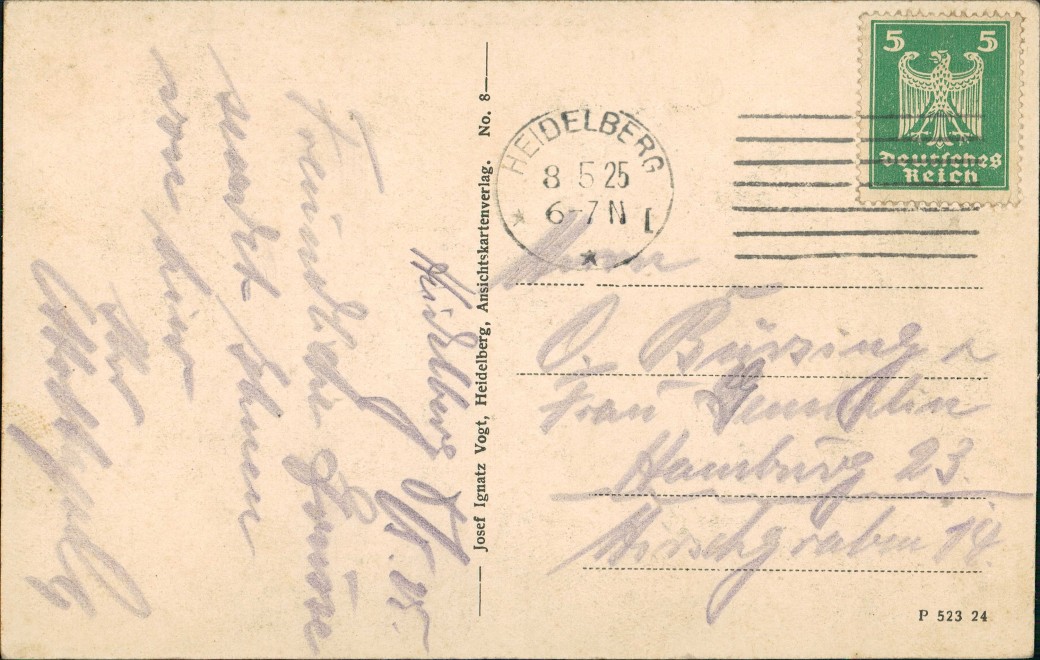 Heidelberg 8/5. 25.
Freundliche Grüsse
sendet Ihnen
von hier
Ihr
Josef Ignatz Vogt, Heidelberg, Ansichtskartenverlag. No. 8
HEIDELBERG
8 5 25
6-7 N
5 5
Deutsches
Reich
Herrn
O. Büssing &
Frau Gemahlin
Hamburg 23
Hirschgraben 14
P 523 24